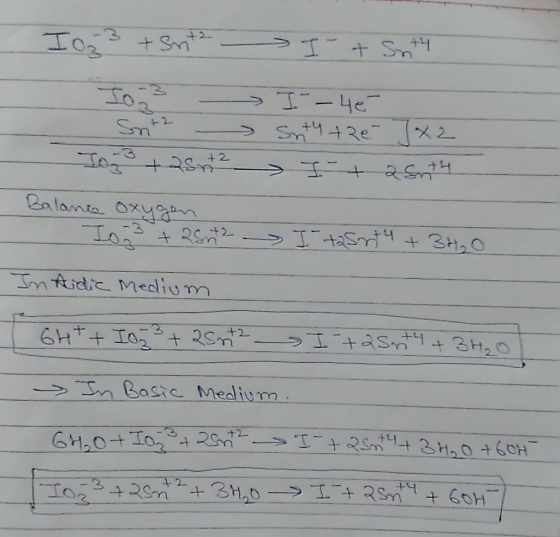 IO₃⁻³ + Sn⁺² ⟶ I⁻ + Sn⁺⁴
IO₃⁻³ ⟶ I⁻ - 4e⁻
Sn⁺² ⟶ Sn⁺⁴ + 2e⁻ ] × 2
IO₃⁻³ + 2Sn⁺² ⟶ I⁻ + 2Sn⁺⁴
Balance Oxygen
IO₃⁻³ + 2Sn⁺² ⟶ I⁻ + 2Sn⁺⁴ + 3H₂O
In Aidic Medium
6H⁺ + IO₃⁻³ + 2Sn⁺² ⟶ I⁻ + 2Sn⁺⁴ + 3H₂O
→ In Basic Medium.
6H₂O + IO₃⁻³ + 2Sn⁺² ⟶ I⁻ + 2Sn⁺⁴ + 3H₂O + 6OH⁻
IO₃⁻³ + 2Sn⁺² + 3H₂O ⟶ I⁻ + 2Sn⁺⁴ + 6OH⁻